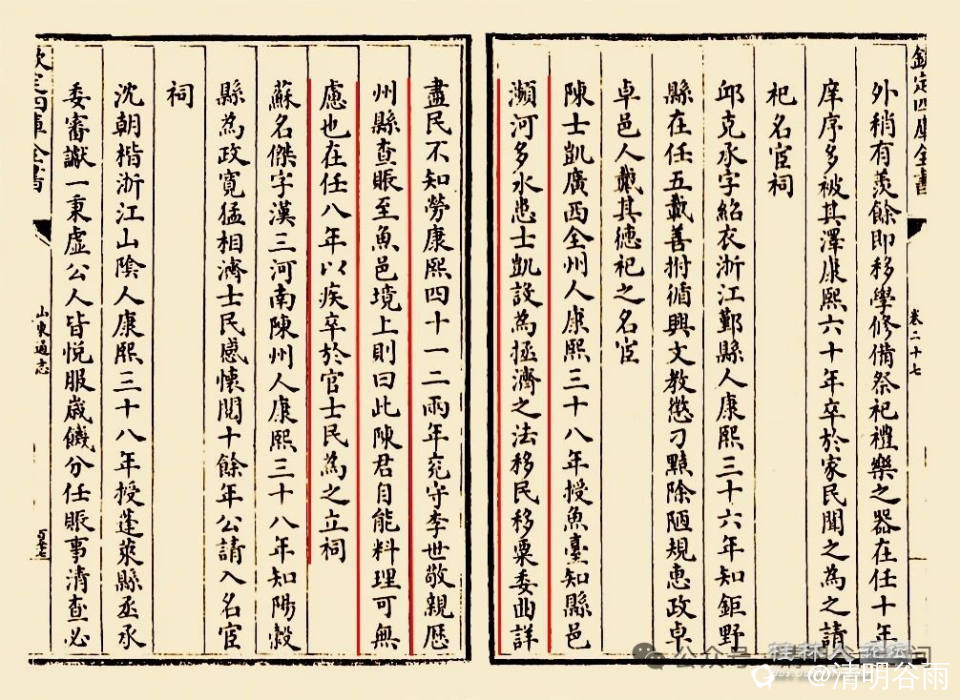 欽定四庫全書
外稍有羨餘即移學修備祭祀禮樂之器在任十年
庠序多被其澤康熙六十年卒於家民聞之為之請
祀名宦祠
邱克承字紹衣浙江鄞縣人康熙三十六年知鉅野
縣在任五載善拊循興文教懲刁黠除陋規惠政卓
卓邑人戴其德祀之名宦
陳士凱廣西全州人康熙三十八年授魚臺知縣邑
瀕河多水患士凱設為拯濟之法移民移粟委曲詳
卷二十七
盡民不知勞康熙四十一二兩年兖守李世敬親歴
州縣查賑至魚邑境上則曰此陳君自能料理可無
慮也在任八年以疾卒於官士民為之立祠
蘇名傑字漢三河南陳州人康熙三十八年知陽榖
縣為政寛猛相濟士民感懷閱十餘年公請入名宦
祠
沈朝楷浙江山陰人康熙三十八年授蓬萊縣丞承
委審讞一秉虚公人皆悦服嵗饑分任賑事清查必
欽定四庫全書
山東通志
公众号
桂林
@清明谷雨